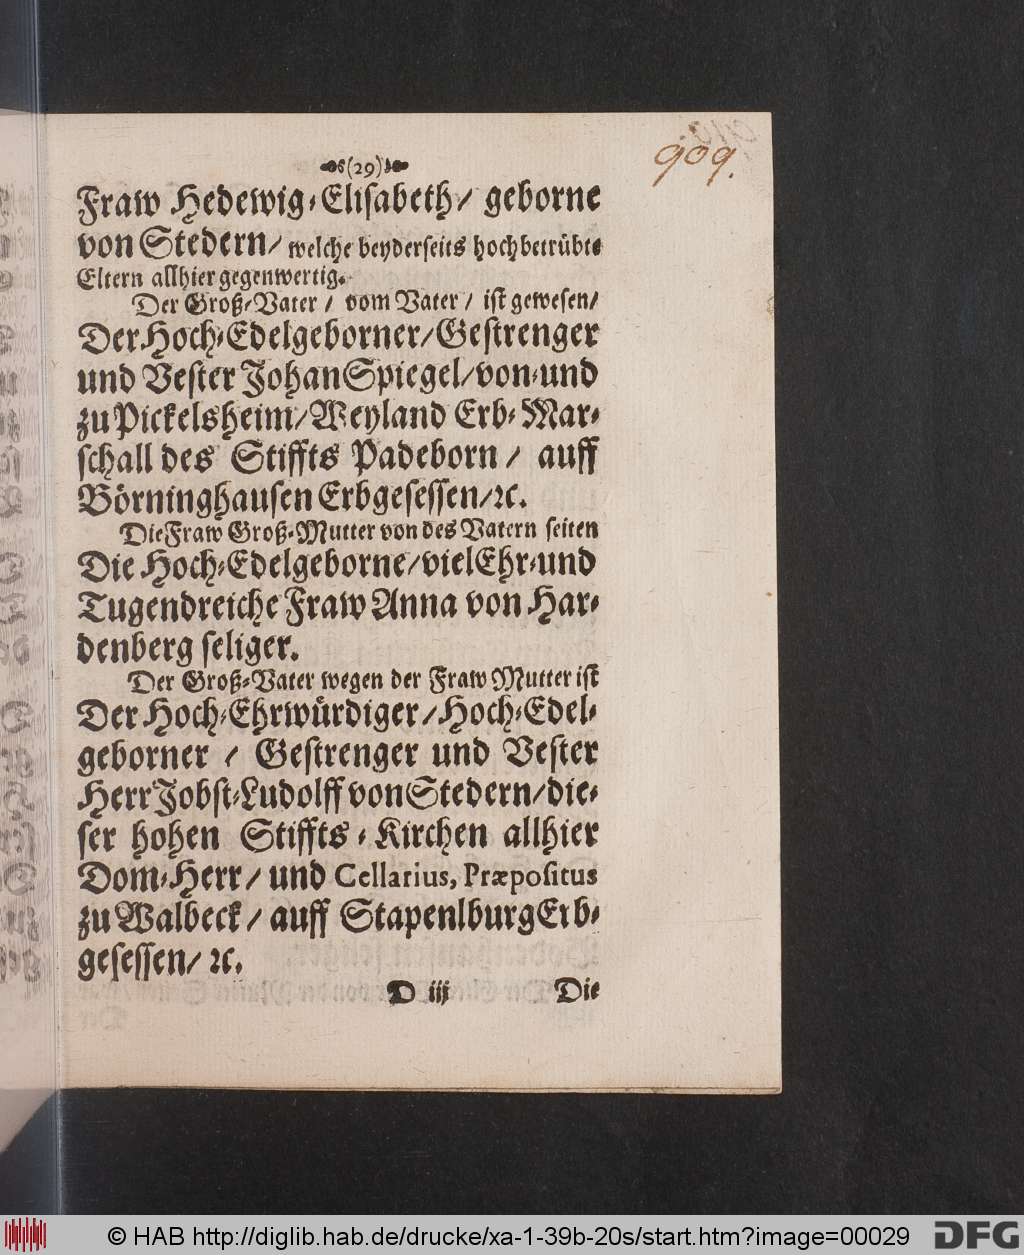 (29)
909.
Fraw Hedewig-Elisabeth/ geborne
von Stedern/ welche beyderseits hochbetrübte
Eltern allhier gegenwertig.
Der Groß-Vater / vom Vater / ist gewesen/
Der Hoch-Edelgeborner/ Gestrenger
und Vester Johan Spiegel/ von-und
zu Pickelsheim/ Weyland Erb-Mar-
schall des Stiffts Padeborn / auff
Börninghausen Erbgesessen/ ꝛc.
Die Fraw Groß-Mutter von des Vatern seiten
Die Hoch-Edelgeborne/ viel Ehr-und
Tugendreiche Fraw Anna von Har-
denberg seliger.
Der Groß-Vater wegen der Fraw Mutter ist
Der Hoch-Ehrwürdiger/ Hoch-Edel-
geborner / Gestrenger und Vester
Herr Jobst-Ludolff von Stedern/ die-
ser hohen Stiffts-Kirchen allhier
Dom-Herr/ und Cellarius, Præpositus
zu Walbeck/ auff Stapenlburg Erb-
gesessen/ ꝛc.
D iij Die
© HAB http://diglib.hab.de/drucke/xa-1-39b-20s/start.htm?image=00029
DFG